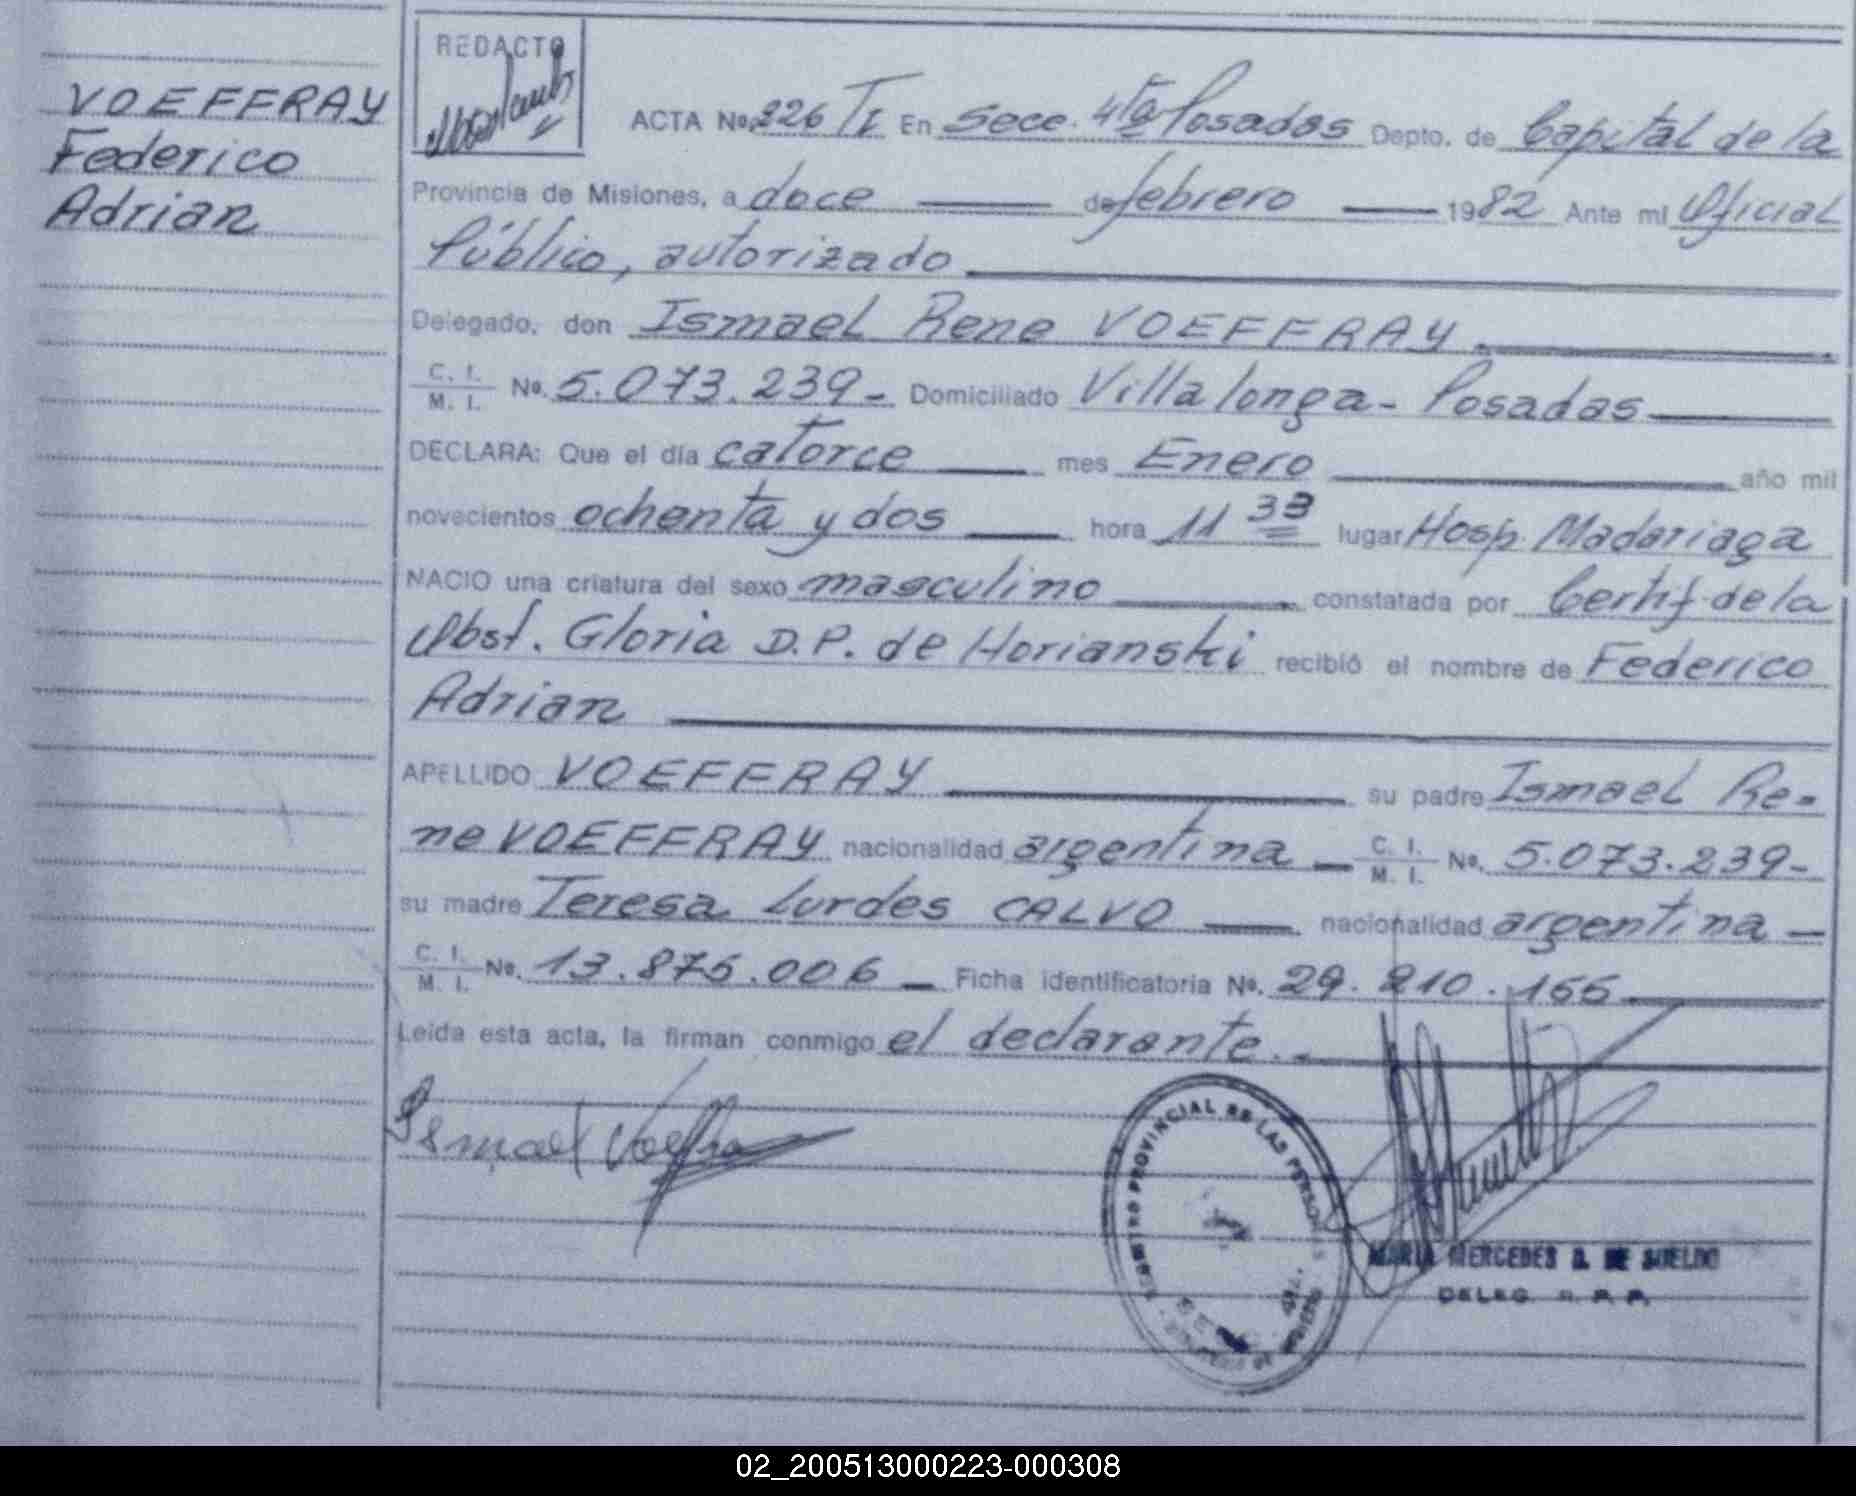 VOEFFRAY
Federico
Adrian
REDACTO
ACTA No. 226 TI En Secc. 4ta Posadas Depto. de Capital de la
Provincia de Misiones, a doce de febrero 1982 Ante mi Oficial
Público, autorizado
Delegado, don Ismael Rene VOEFFRAY.
C. I.
M. I. No. 5.073.239- Domiciliado Villa longa- Posadas
DECLARA: Que el día catorce mes Enero año mil
novecientos ochenta y dos hora 11 33 lugar Hosp. Madariaga
NACIO una criatura del sexo masculino constatada por Certif. de la
Obst. Gloria D.P. de Horianski recibió el nombre de Federico
Adrian
APELLIDO VOEFFRAY su padre Ismael Re-
ne VOEFFRAY nacionalidad argentina - C. I.
M. I. No. 5.073.239-
su madre Teresa Lurdes CALVO nacionalidad argentina -
C. I.
M. I. No. 13.875.006 - Ficha identificatoria No. 29.210.155
Leida esta acta, la firman conmigo el declarante.-
Ismael Voeffra
REGISTRO PROVINCIAL DE LAS PERSONAS
MARIA MERCEDES DE SUELDO
DELEG. R. P. P.
02_200513000223-000308